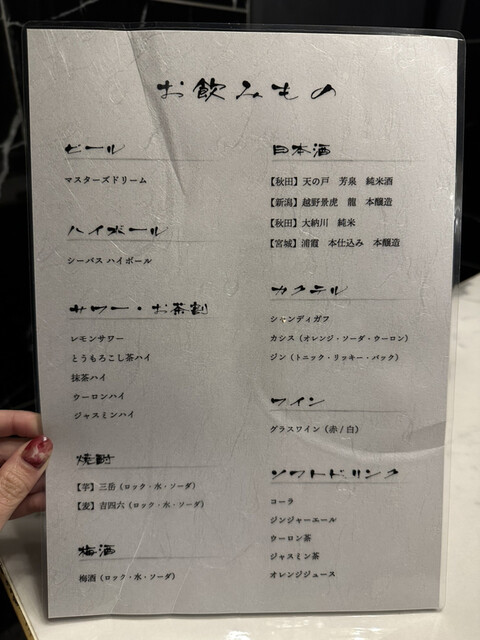 お飲みもの
ビール
マスターズドリーム
ハイボール
シーバス ハイボール
サワー・お茶割
レモンサワー
とうもろこし茶ハイ
抹茶ハイ
ウーロンハイ
ジャスミンハイ
焼酎
【芋】三岳（ロック・水・ソーダ）
【麦】吉四六（ロック・水・ソーダ）
梅酒
梅酒（ロック・水・ソーダ）
日本酒
【秋田】天の戸　芳泉　純米酒
【新潟】越野景虎　龍　本醸造
【秋田】大納川　純米
【宮城】浦霞　本仕込み　本醸造
カクテル
シャンディガフ
カシス（オレンジ・ソーダ・ウーロン）
ジン（トニック・リッキー・バック）
ワイン
グラスワイン（赤 / 白）
ソフトドリンク
コーラ
ジンジャーエール
ウーロン茶
ジャスミン茶
オレンジジュース